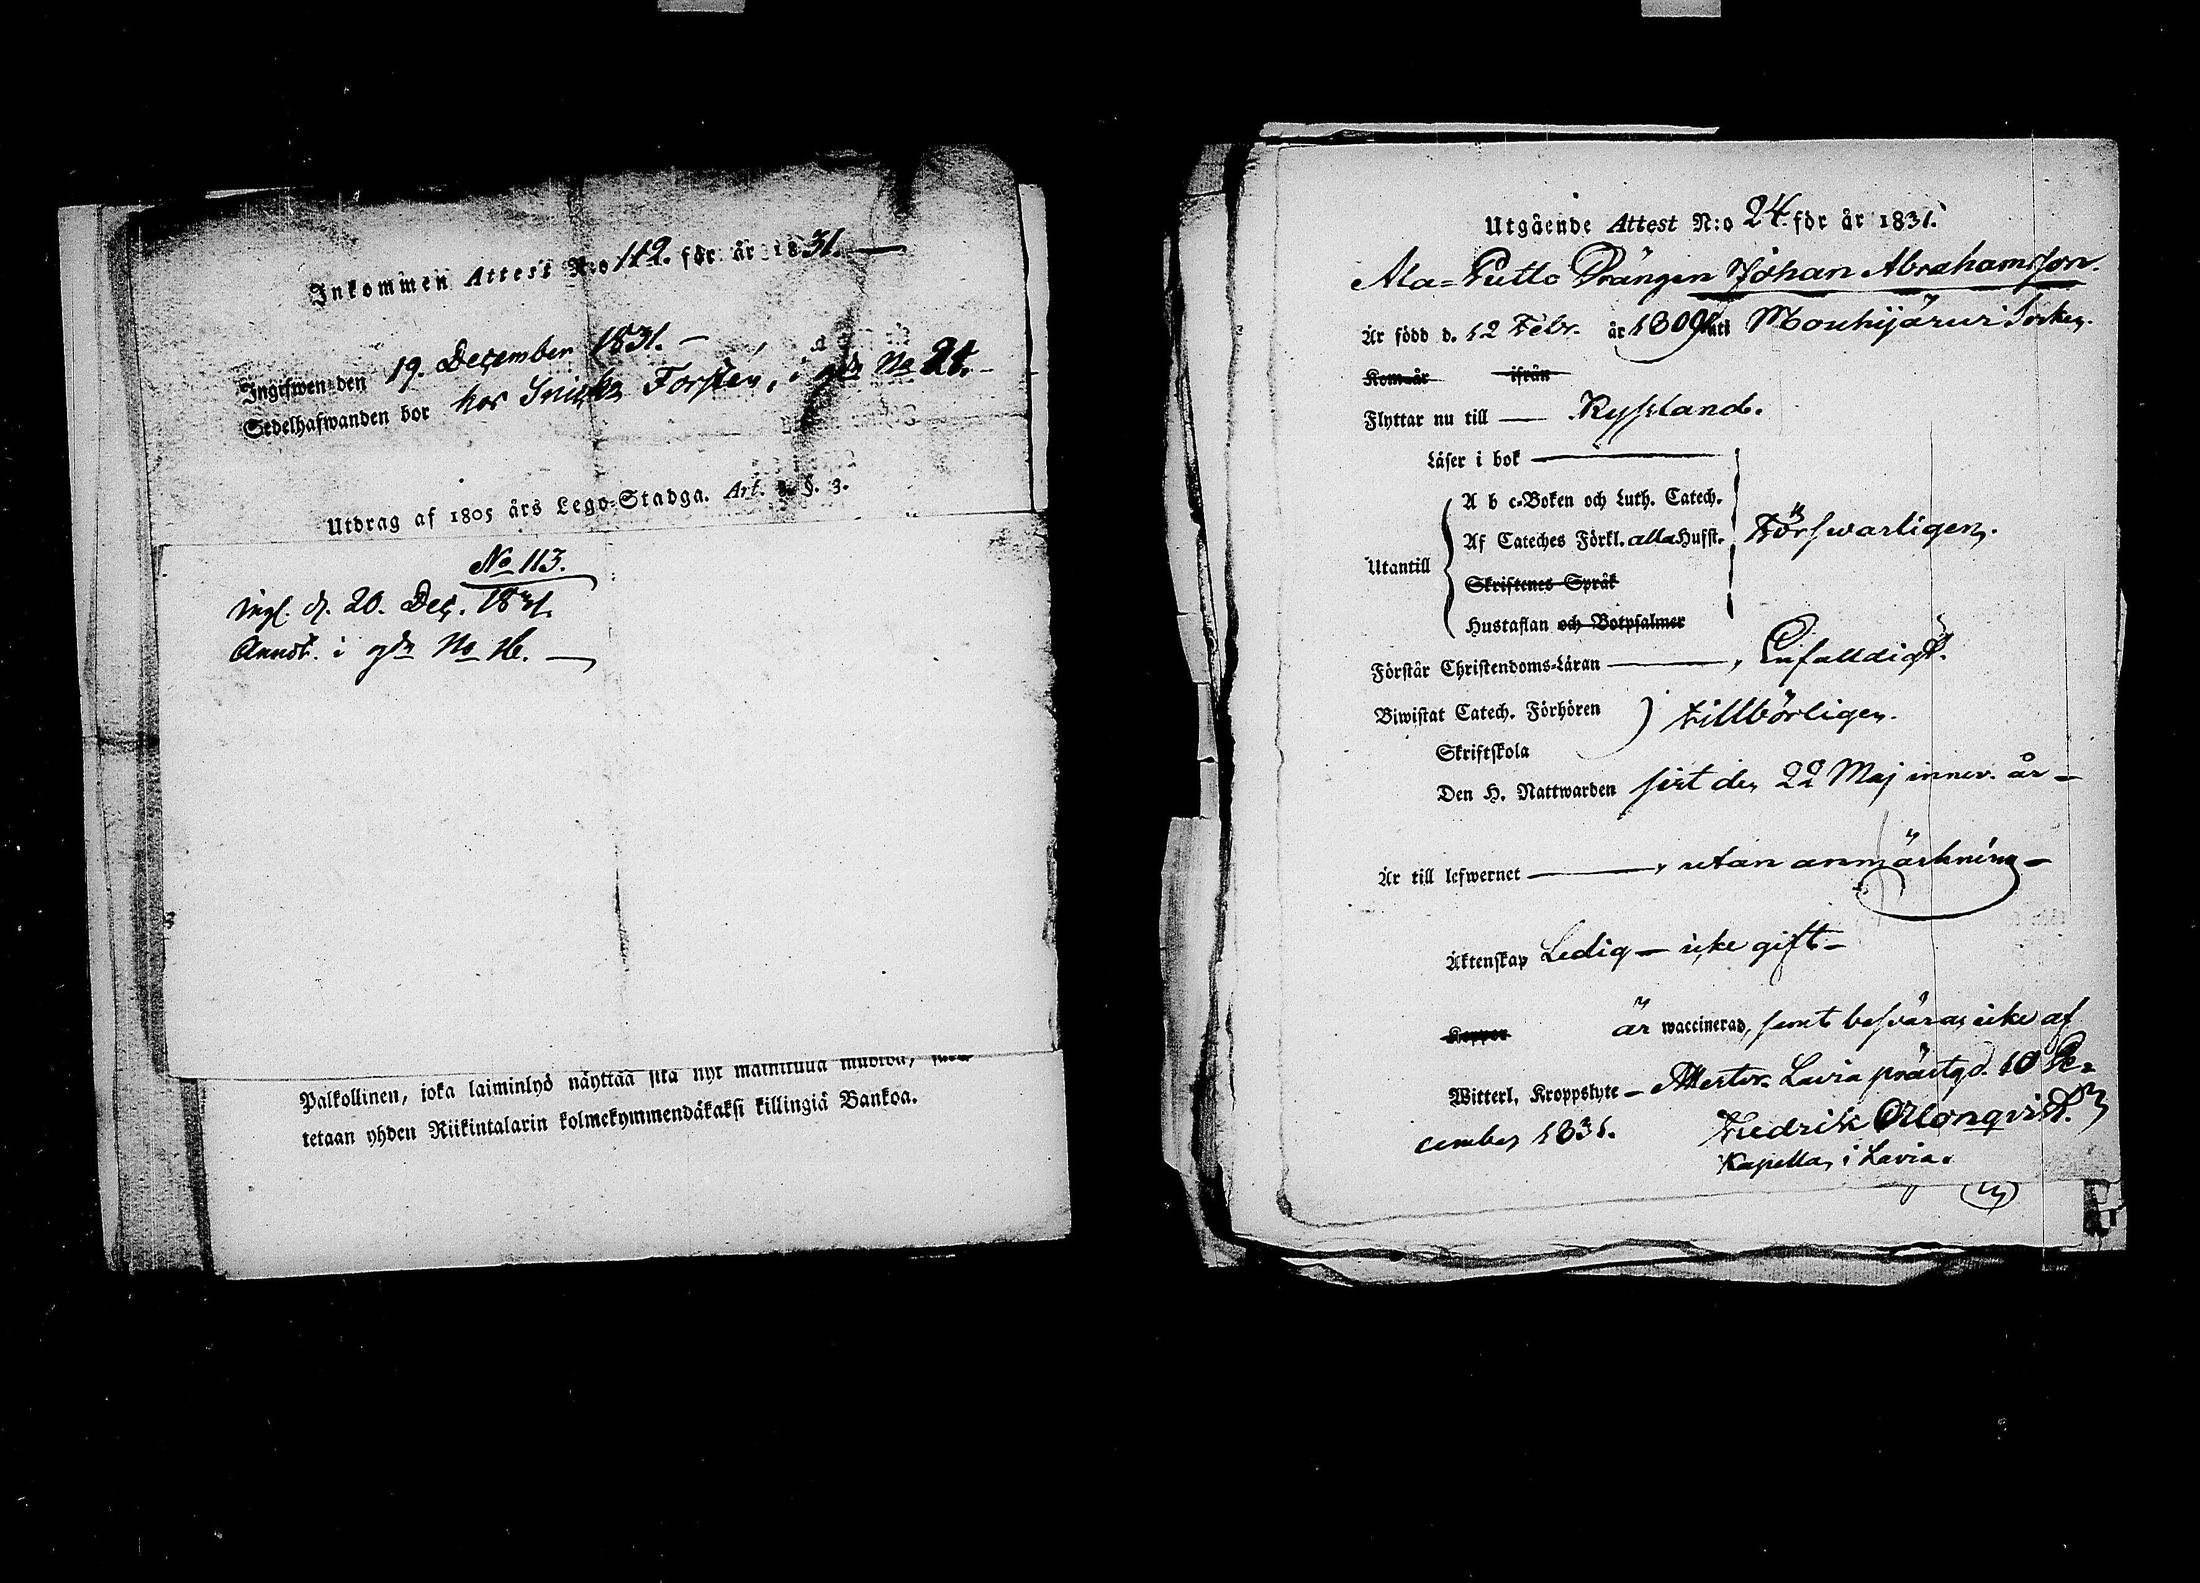 Inkommen Attest N:o 112. för år 1831. —
Ingifwen den 19. December 1831. —
Sedelhafwanden bor hos Snick. Forstén, i gdn No 24. —
Utdrag af 1805 års Lego-Stadga. Art. §. 3.
No 113.
Ingl. d. 20. Dec. 1831.
i gdn No
Palkollinen, joka laiminlyö näyttää sitä nyt mainittua muotoa,
tetaan yhden Riikintalarin kolmekymmendäkaksi killingiä Bankoa.
Utgående Attest N:o 24. för år 1831.
Ala-Putto Drängen Johan Abrahamsson.
Är född d. 12 Febr. år 1809 uti Mouhijärvi Socken.
Kom år ifrån
Flyttar nu till — Ryssland.
Läser i bok —
A b c-Boken och Luth. Catech.
Af Cateches Förkl. alla Hufst. Försvarligen.
Utantill
Skriftenes Språk
Hustaflan och Botpsalmer
Förstår Christendoms-Läran —, Enfalldigt.
Biwistat Catech. Förhören ) tillbörligen.
Skriftskola
Den H. Nattwarden sist den 22 Maj innev. år —
Är till lefwernet —, utan anmärkning —
Äktenskap Ledig — icke gift —
Koppor är waccinerad, samt besväras icke af
Witterl. Kroppslyte — Attester. Lavia prästgd. 10 De-
cember 1831. Fredrik
Kapellan i Lavia.